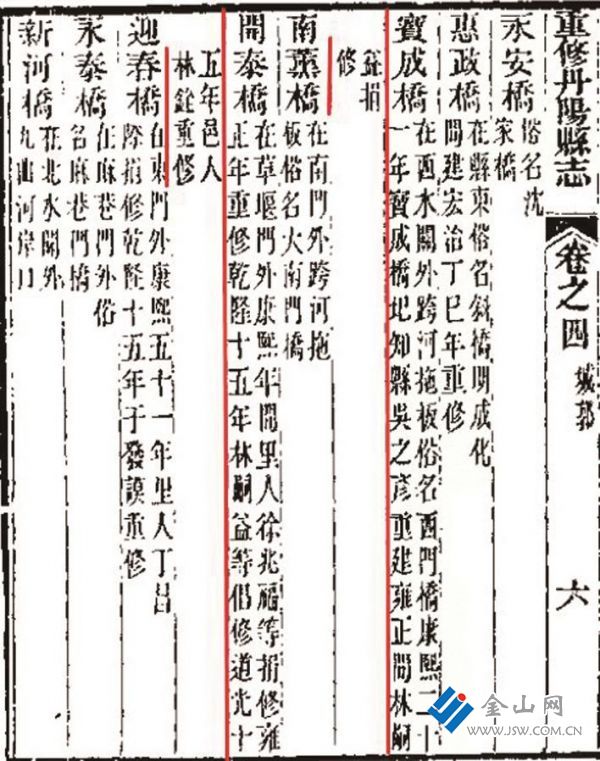 重修丹陽縣志 卷之四 城郭 六
永安橋 俗名沈
家橋
惠政橋 在縣東俗名斜橋明成化
間建宏治丁巳年重修
寶成橋 在西水關外跨河拖板俗名西門橋康熙二十
一年寶成橋圮知縣吳之彥重建雍正間林嗣
益捐
修
南薰橋 在南門外跨河拖
板俗名大南門橋
開泰橋 在草堰門外康熙年間里人徐兆福等捐修雍
正年重修乾隆十五年林嗣益等倡修道光十
五年邑人
林銓重修
迎春橋 在東門外康熙五十一年里人丁昌
際捐修乾隆十五年于發謨重修
永泰橋 在麻巷門外俗
名麻巷門橋
新河橋 在北水關外
九曲河岸口
金山网
www.JSW.com.cn